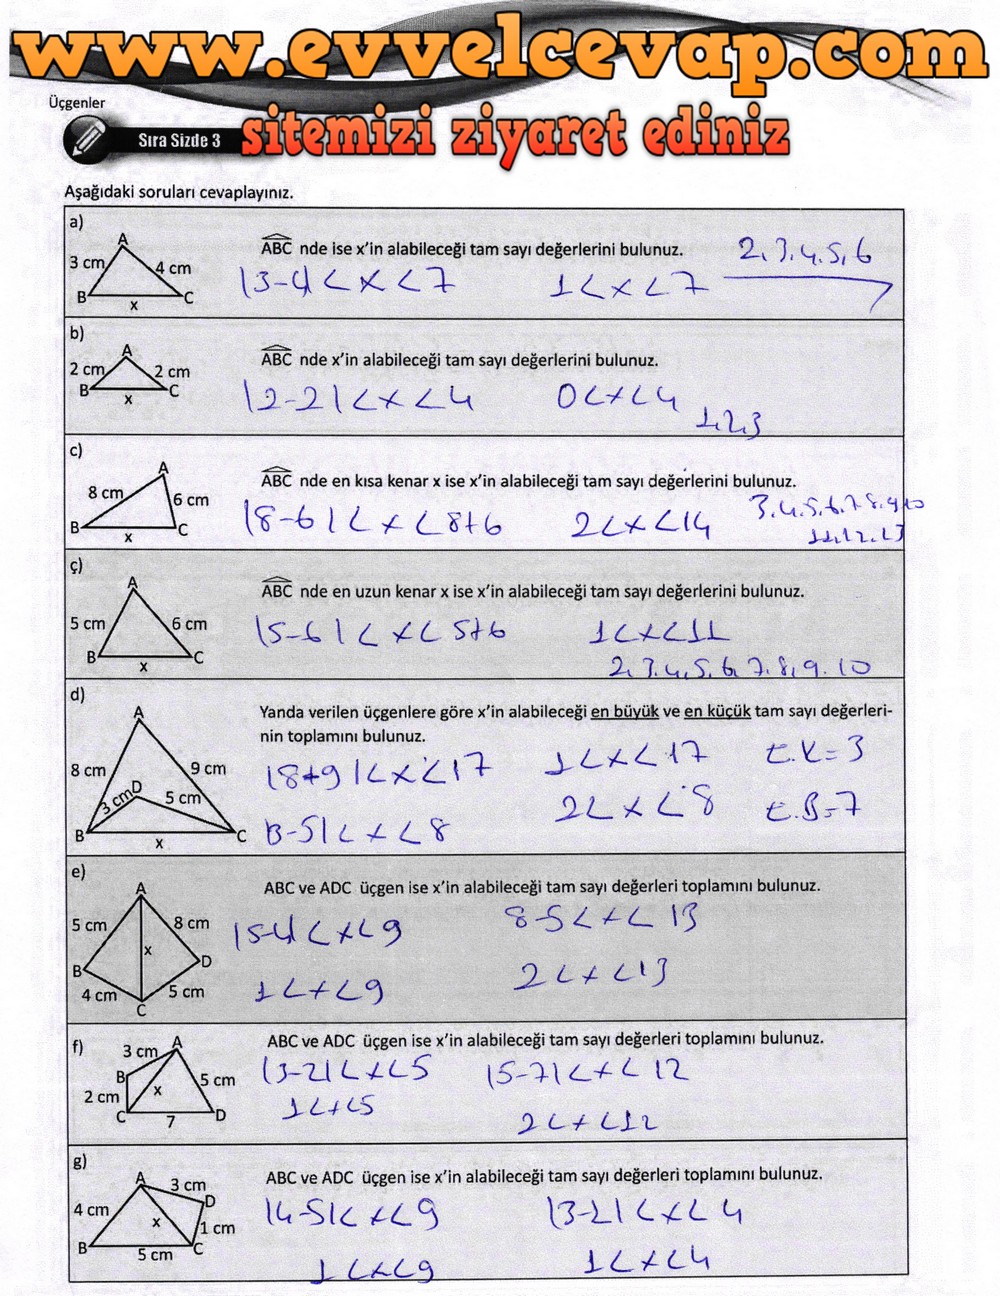 www.evvelcevap.com
Üçgenler
Sıra Sizde 3
sitemizi ziyaret ediniz
Aşağıdaki soruları cevaplayınız.
a)
A
3 cm
4 cm
B
x
C
ABC nde ise x'in alabileceği tam sayı değerlerini bulunuz.
2,3,4,5,6
|3-4|<x<7
1<x<7
b)
A
2 cm
2 cm
B
x
C
ABC nde x'in alabileceği tam sayı değerlerini bulunuz.
|2-2|<x<4
0<x<4
1,2,3
c)
A
8 cm
6 cm
B
x
C
ABC nde en kısa kenar x ise x'in alabileceği tam sayı değerlerini bulunuz.
|8-6|<x<8+6
2<x<14
3,4,5,6,7,8,9,10
11,12,13
ç)
A
5 cm
6 cm
B
x
C
ABC nde en uzun kenar x ise x'in alabileceği tam sayı değerlerini bulunuz.
|5-6|<x<5+6
1<x<11
2,3,4,5,6,7,8,9,10
d)
A
8 cm
9 cm
3 cm
D
5 cm
B
x
C
Yanda verilen üçgenlere göre x'in alabileceği en büyük ve en küçük tam sayı değerleri-
nin toplamını bulunuz.
|8+9|<x<17
1<x<17
E.K=3
|3-5|<x<8
2<x<8
E.B=7
e)
A
5 cm
8 cm
x
B
D
4 cm
5 cm
C
ABC ve ADC üçgen ise x'in alabileceği tam sayı değerleri toplamını bulunuz.
|5-4|<x<9
8-5<x<13
1<x<9
2<x<13
f)
3 cm
A
B
x
5 cm
2 cm
C
7
D
ABC ve ADC üçgen ise x'in alabileceği tam sayı değerleri toplamını bulunuz.
|3-2|<x<5
|5-7|<x<12
1<x<5
2<x<12
g)
A
3 cm
D
4 cm
x
1 cm
B
5 cm
C
ABC ve ADC üçgen ise x'in alabileceği tam sayı değerleri toplamını bulunuz.
|4-5|<x<9
|3-2|<x<4
1<x<9
1<x<4